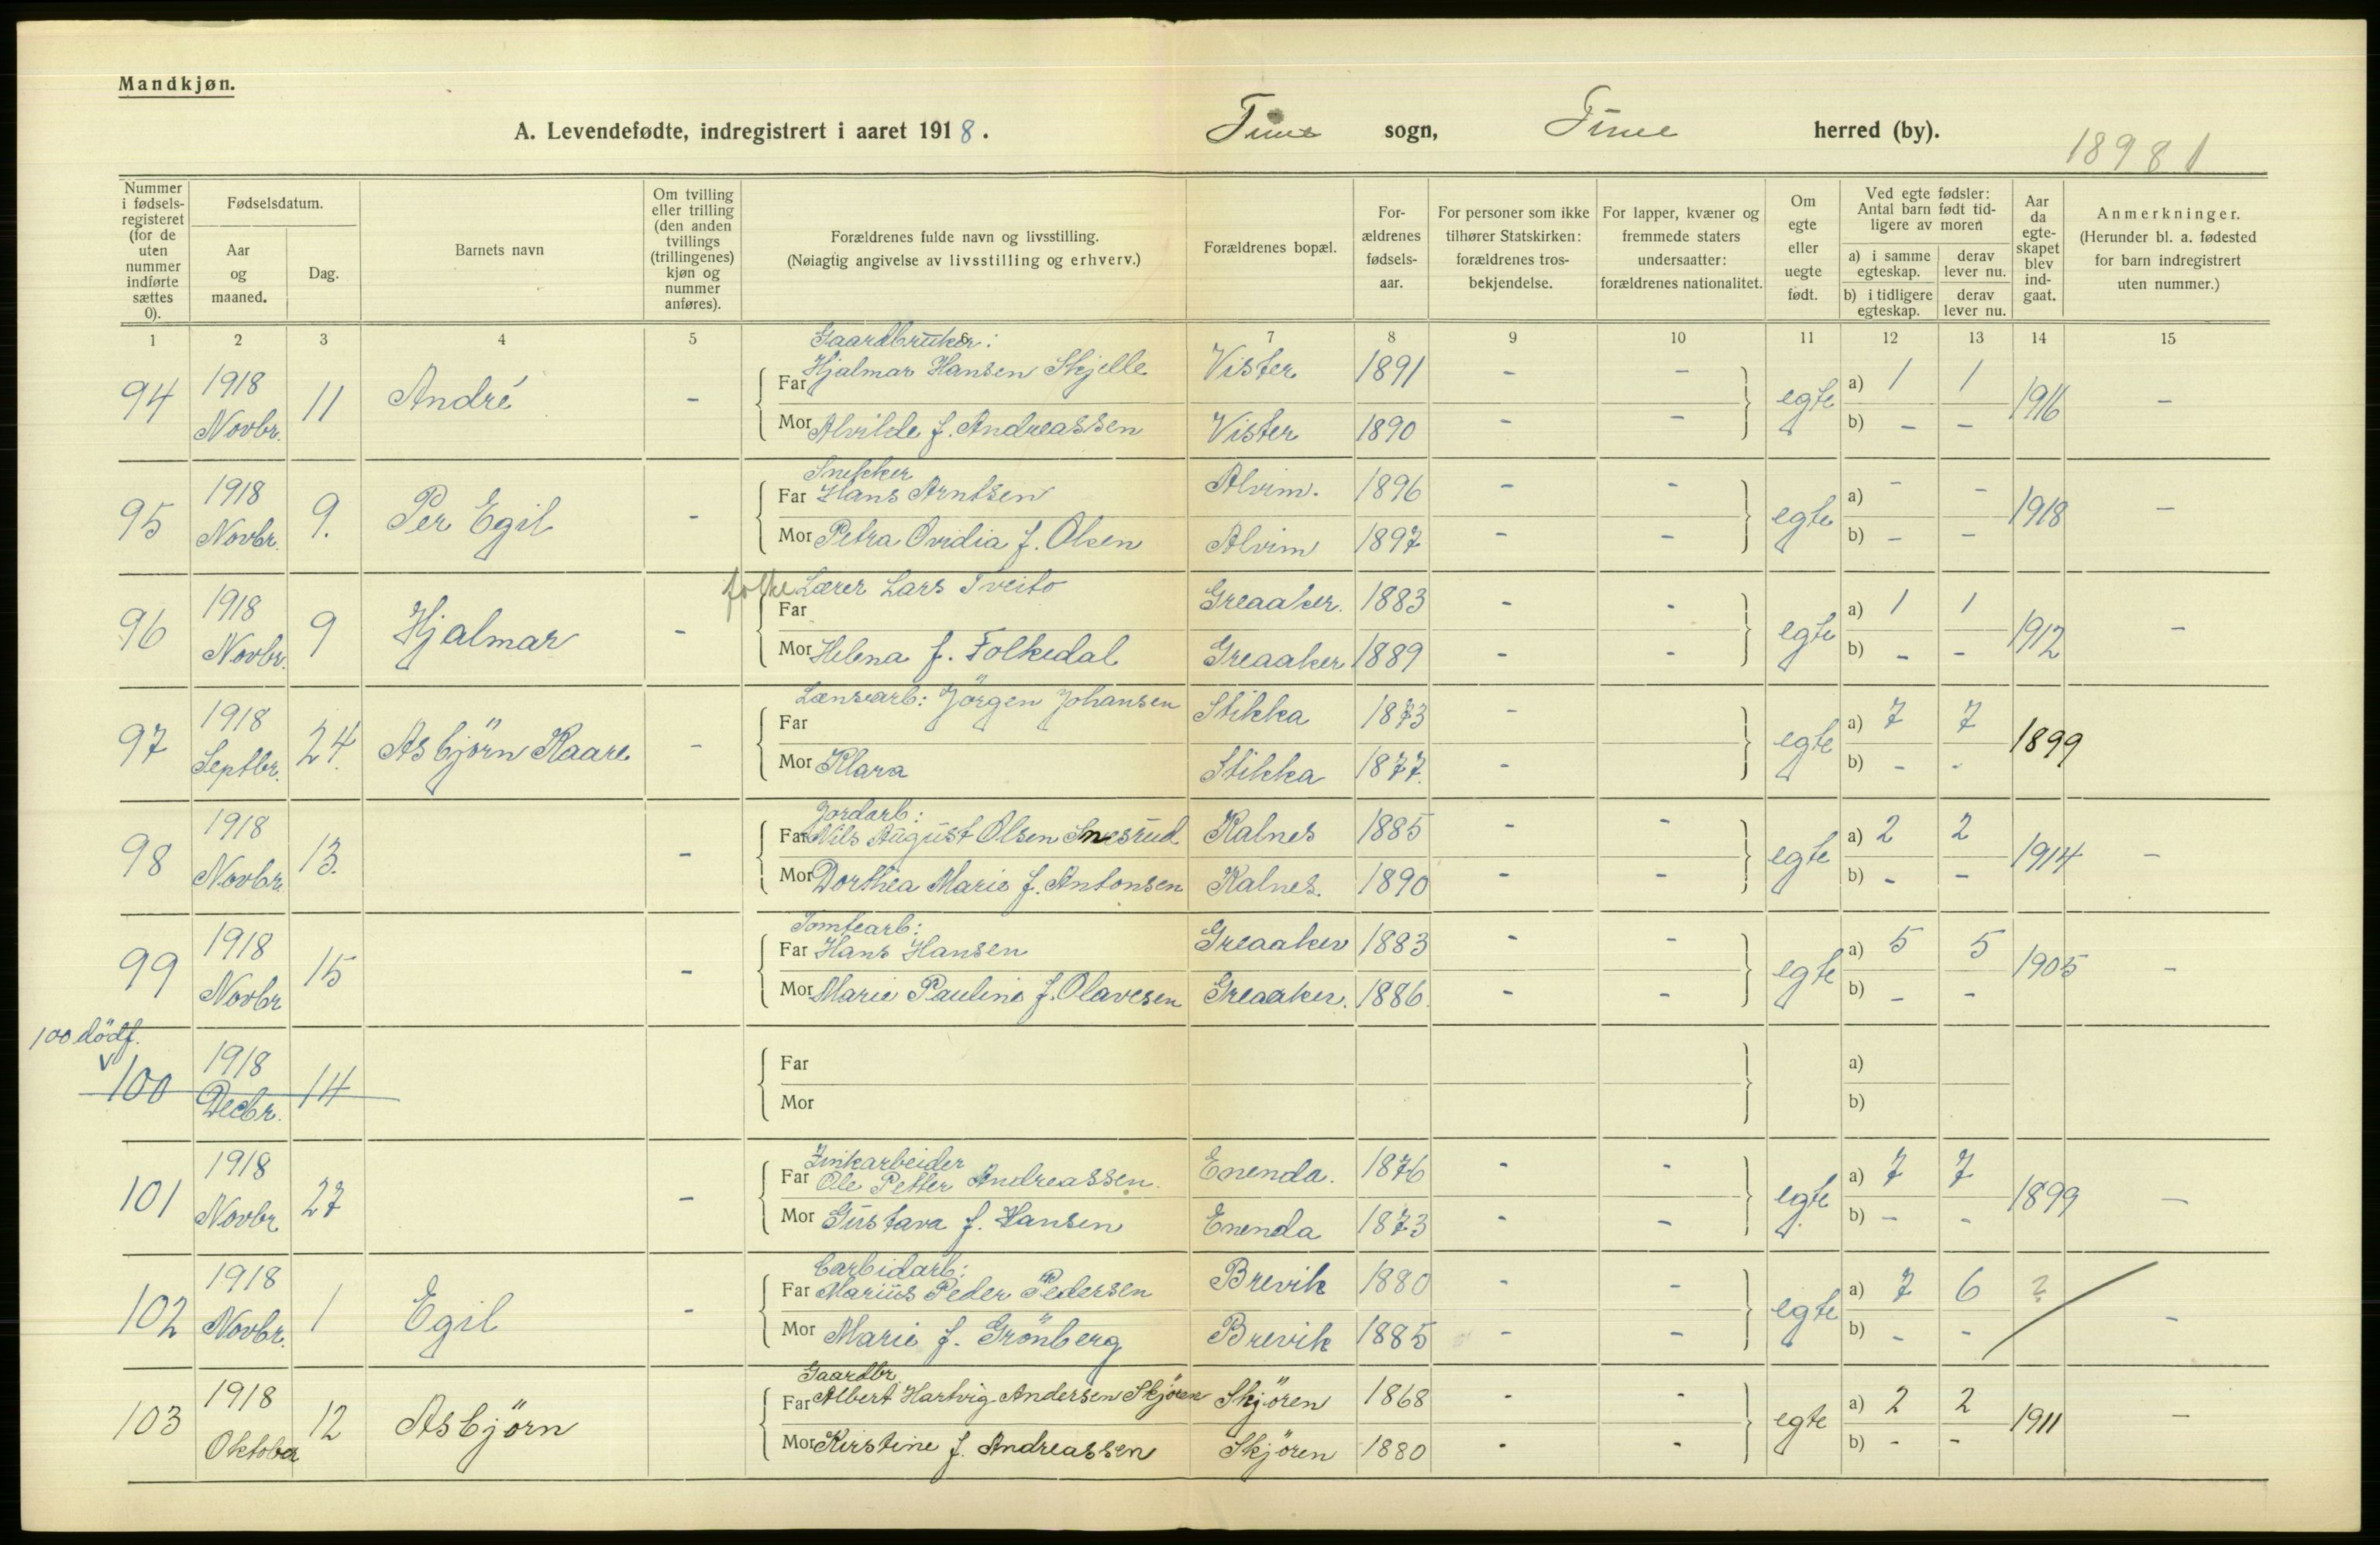 Mandkjøn.
A. Levendefødte, indregistrert i aaret 1918. Tune sogn, Tune herred (by).
18981
Nummer i fødsels-registeret (for de uten nummer indførte sættes 0).
Fødselsdatum.
Aar og maaned.
Dag.
Barnets navn
Om tvilling eller trilling (den anden tvillings (trillingenes) kjøn og nummer anføres).
Forældrenes fulde navn og livsstilling.
(Nøiagtig angivelse av livsstilling og erhverv.)
Forældrenes bopæl.
For-ældrenes fødsels-aar.
For personer som ikke tilhører Statskirken: forældrenes tros-bekjendelse.
For lapper, kvæner og fremmede staters undersaatter: forældrenes nationalitet.
Om egte eller uegte født.
Ved egte fødsler: Antal barn født tid-ligere av moren
a) i samme egteskap.
derav lever nu.
b) i tidligere egteskap.
derav lever nu.
Aar da egte-skapet blev ind-gaat.
Anmerkninger.
(Herunder bl. a. fødested for barn indregistrert uten nummer.)
1 2 3 4 5 6 7 8 9 10 11 12 13 14 15
Gaardbruker:
94 1918 Novbr. 11 André - Far Hjalmar Hansen Skjelle Vister 1891 - - egte a) 1 1 1916 -
Mor Alvilde f. Andreassen Vister 1890 - - b) - -
Snekker
95 1918 Novbr. 9. Per Egil - Far Hans Arntsen Alvim. 1896 - - egte a) - - 1918 -
Mor Petra Ovidia f. Olsen Alvim 1897 - - b) - -
folke Lærer Lars Tveito
96 1918 Novbr. 9 Hjalmar - Far Greaaker. 1883 - - egte a) 1 1 1912 -
Mor Helena f. Folkedal Greaaker 1889 - - b) - -
Lænsearb: Jörgen Johansen
97 1918 Septbr. 24. Asbjörn Kaare - Far Stikka 1873 - egte a) 7 7 1899
Mor Klara Stikka 1877. - b) - -
Jordarb:
98 1918 Novbr. 13. - Far Nils August Olsen Snesrud Kalnes 1885 - - egte a) 2 2 1914 -
Mor Dorthea Marie f. Antonsen Kalnes. 1890 - - b) - -
Tomtearb:
99 1918 Novbr 15 - Far Hans Hansen Greaaker 1883 - - egte a) 5 5 1905 -
Mor Marie Pauline f. Olavesen Greaaker. 1886. - - b) - -
100 dödf.
100 1918 Decbr. 14 Far a)
Mor b)
Zinkarbeider
101 1918 Novbr 27 - Far Ole Petter Andreassen. Enenda. 1876 - - egte a) 7 7 1899 -
Mor Gustava f. Hansen Enenda 1873 - - b) - -
Carbidarb:
102 1918 Novbr. 1 Egil - Far Marius Peder Pedersen Brevik 1880 - - egte a) 7 6 ? -
Mor Marie f. Grönberg Brevik 1885 - - b) - -
Gaardbr.
103 1918 Oktober 12 Asbjörn Far Albert Hartvig Andersen Skjören Skjören 1868 - - egte a) 2 2 1911 -
Mor Kirstine f. Andreassen Skjören 1880 - - b) - -